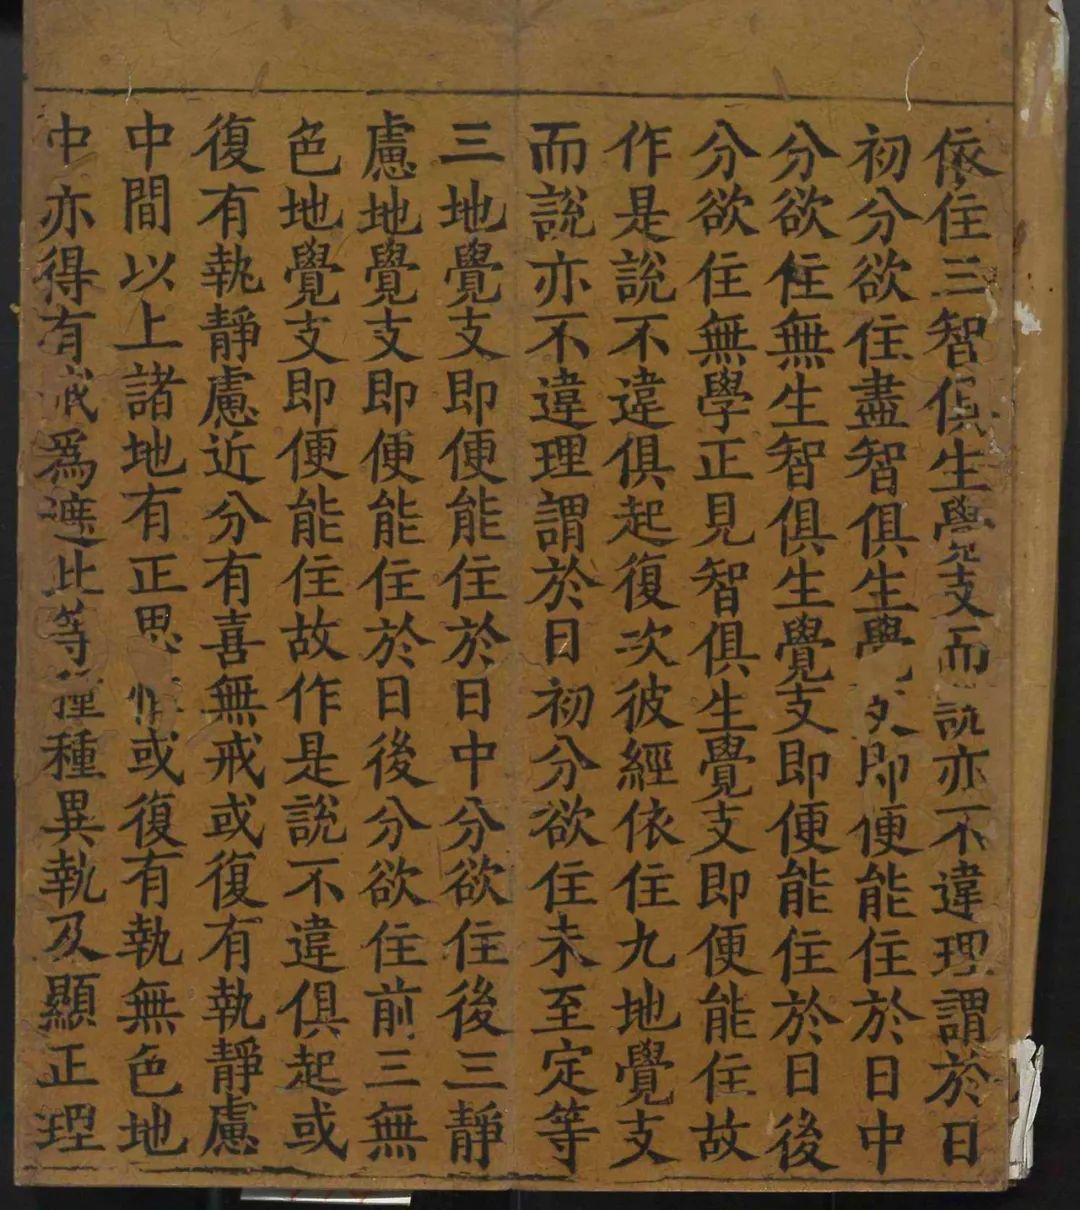 依住三智俱生覺支而說亦不違理謂於日
初分欲住盡智俱生覺支即便能住於日中
分欲住無生智俱生覺支即便能住於日後
分欲住無學正見智俱生覺支即便能住故
作是說不違俱起復次彼經依住九地覺支
而說亦不違理謂於日初分欲住未至定等
三地覺支即便能住於日中分欲住後三靜
慮地覺支即便能住於日後分欲住前三無
色地覺支即便能住故作是說不違俱起或
復有執靜慮近分有喜無戒或復有執靜慮
中間以上諸地有正思惟或復有執無色地
中亦得有戒為遮此等種種異執及顯正理